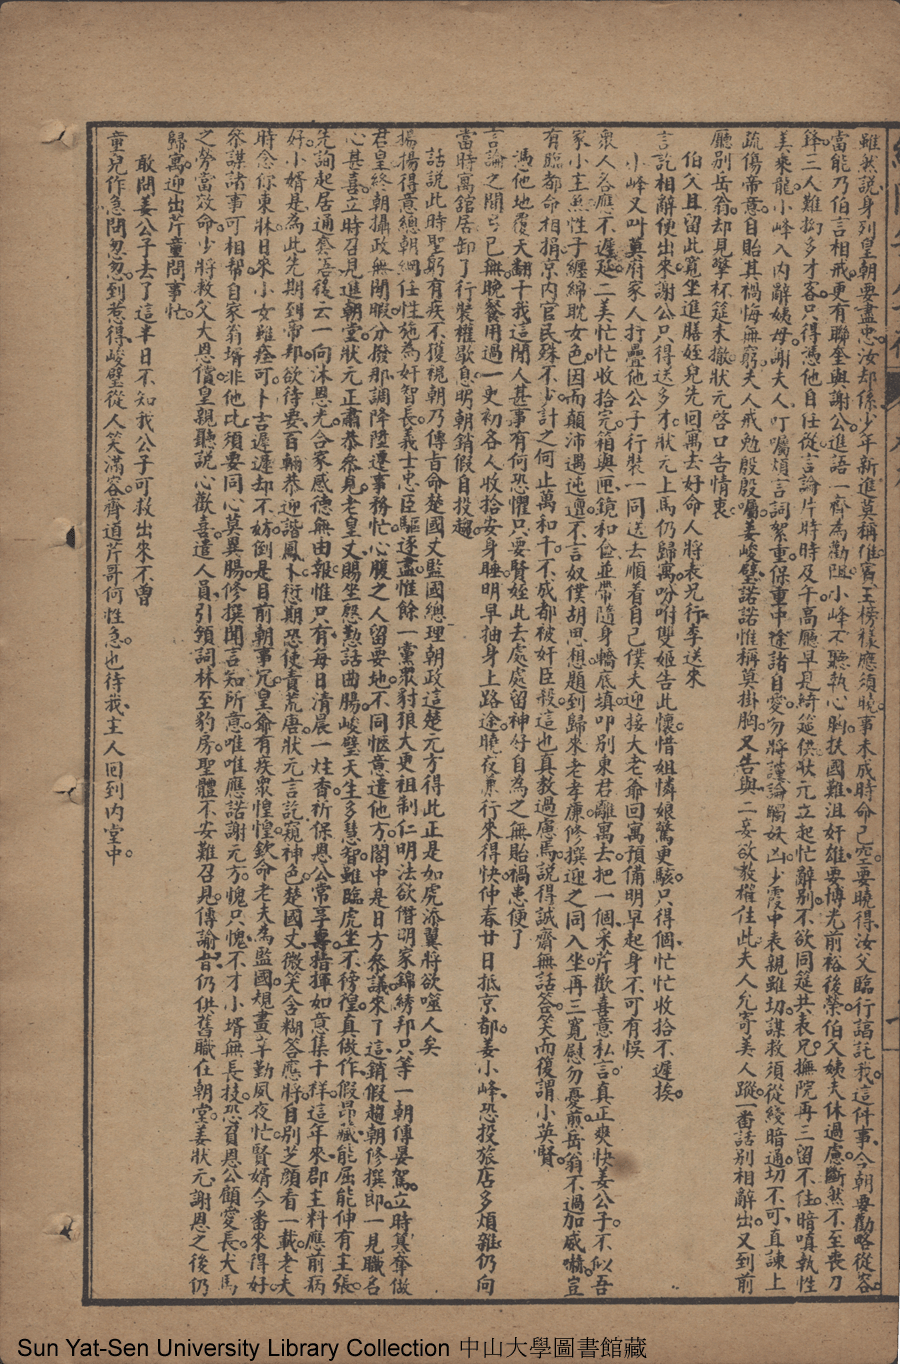 雖然說身列皇朝要盡忠。汝却係少年新進莫稱雄。賓王榜樣應須曉。事未成時命已空。要曉得、汝父臨行諄託我這件事、今朝要勸略從容。
當能乃伯言相戒。更有聯奎與謝公。進語一齊為勸阻。小峰不聽執心胸。扶國難沮奸雄。要博光前裕後榮。伯父姨夫休過慮。斷然不至喪刀
鋒。三人難拗多才客。只得憑他自任從。言論片時時及午。高廳早見綺筵供。狀元立起忙辭別。不欲同筵共表兄。撫院再三留不住。暗嗔執性
美來龍。小峰入內辭姨母。謝夫人叮囑煩言詞絮重。保重中途諸自愛。勿將讜論觸奴凶。少霞中表親雖切。謀救須從緩暗通。切不可、直諫上
疏傷帝意。自貽其禍悔無窮。夫人戒勉殷殷屬。姜峻璧諾諾惟稱莫掛胸。又告與二妾欲教權住此。夫人允寄美人蹤。一番話別相辭出。又到前
廳別岳翁。却見擎杯筵未撤。狀元啓口告情衷。
伯父且留此寬坐進膳姪兒先回寓去好命人將表兄行李送來
言訖相辭便出來。謝公只得送多才。狀元上馬仍歸寓。吩咐雙姬告此懷。惜姐憐娘驚更駭。只得個、忙忙收拾不遲挨。
小峰又叫莫府家人打疊他公子行裝一同送去順着自己僕夫迎接大老爺回寓預備明早起身不可有悞
衆人各應不遲延。二美忙忙收拾完。箱與匣、鏡和奩。並帶隨身轎底填。叩別東君離寓去。把一個、采芹歡喜意私言。真正爽快姜公子。不似吾
家小主焦。性子纏綿耽女色。因而顛沛遇迍邅。不言奴僕胡思想。題到歸來老孝廉。修撰迎之同入坐。再三寬慰勿憂煎。岳翁不過加威嚇。豈
有臨都命相捐。京內官民殊不少。計之何止萬和千。不成都被奸臣殺。這也真教過慮焉。說得誠齋無話答。笑而復謂小英賢。
憑他地覆天翻十我這閒人甚事有何恐懼只要賢姪此去處處留神好自為之無貽禍患便了
言論之間日已無。晚餐用過一更初。各人收拾安身睡。明早抽身上路途。曉夜兼行來得快。仲春廿日抵京都。姜小峰、恐投旅店多煩雜。仍向
當時寓舘居。卸了行裝權歇息。明朝銷假自投趨。
話說此時聖躬有疾不復視朝乃傳旨命楚國丈監國總理朝政這楚元方得此正是如虎添翼將欲噬人矣
揚揚得意總朝綱。任性施為奸智長。義士忠臣驅逐盡。惟餘一黨衆豺狼。大更祖制仁明法。欲僭明家錦綉邦。只等一朝傳晏駕。立時篡奪做
君皇。終朝攝政無閒暇。分撥那、調降陞遷事務忙。心腹之人留要地。不同惬意遣他方。閣中是日方叅議。來了這、銷假趨朝修撰郎。一見職名
心甚喜。立時召見進朝堂。狀元正肅恭叅見。老皇丈賜坐慇懃話曲腸。峻璧天生多慧智。雖臨虎坐不徬徨。真做作、假昂藏。能屈能伸有主張。
先詢起居通套語。後云一向沐恩光。合家感德無由報。惟只有、每日清晨一炷香。祈保恩公常享壽。指揮如意集千祥。這年來、郡主料應前病
好。小婿是為此先期到帝邦。欲待要、百輛恭迎諧鳳卜。衍期恐使責荒唐。狀元言訖窺神色。楚國丈、微笑含糊答應將。自別芝顏看一載。老夫
時念你東牀。日來小女雖痊可。卜吉遲遲却不妨。倒是目前朝事冗。皇爺有疾衆惶惶。欽命老夫為監國。規畫辛勤夙夜忙。賢婿今番來得好。
叅謀諸事可相幫。自家翁壻非他比。須要同心莫異腸。修撰聞言知所意。唯唯應諾謝元方。愧只愧、不才小壻無長技。恐負恩公顧愛長。犬馬
之勞當效命。少將救父大恩償。皇親聽說心歡喜。遣人員、引領詞林至豹房。聖體不安難召見。傳諭旨、仍供舊職在朝堂。姜狀元、謝恩之後仍
歸寓。迎出芹童問事忙。
敢問姜公子去了這半日不知我公子可救出來不曾
童兒作急問忽忽。到惹得、峻璧從人笑滿容。齊道芹哥何性急。也待我、主人回到內堂中。
Sun Yat-Sen University Library Collection 中山大學圖書館藏